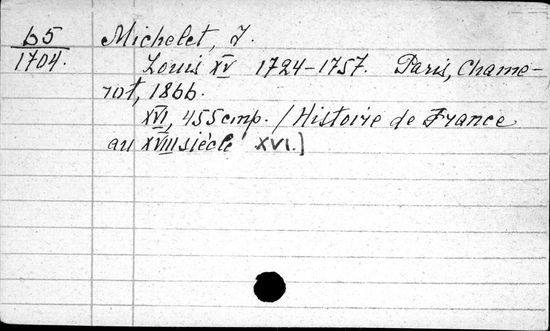 b5 Michelet, J.
1704. Louis XV 1724-1757. Paris, Chame-
rot, 1866.
XVI, 455 стр. /Histoire de France
au XVIII siècle XVI.]